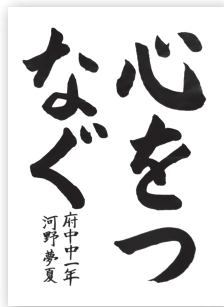 心をつ
なぐ
府中中一年
河野夢夏